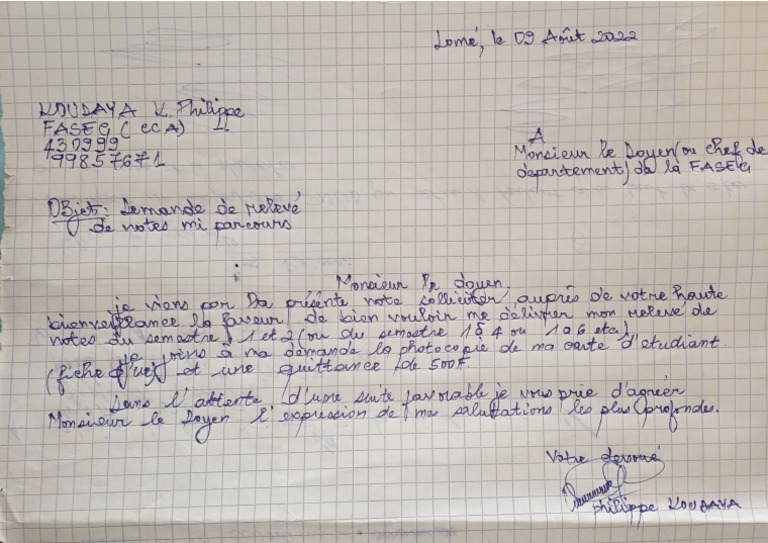 Lomé, le 09 Août 2022
KOUDAYA K. Philippe
FASEG (ECA)
430999
99857671
A
Monsieur le Doyen (ou chef de
département) de la FASEG
Objet: Demande de relevé
de notes mi parcours
Monsieur le doyen,
je viens par la présente note solliciter, auprès de votre haute
bienveillance la faveur de bien vouloir me délivrer mon relevé de
notes du semestre 1 et 2 (ou du semestre 1 à 4 ou 1 a 6 etc)
je joins à ma demande la photocopie de ma carte d'etudiant
(fiche d'ue) et une quittance de 500F.
Dans l'attente d'une suite favorable je vous prie d'agréer
Monsieur le Doyen l'expression de mes salutations les plus profondes.
Votre devoué
philippe KOUDAYA